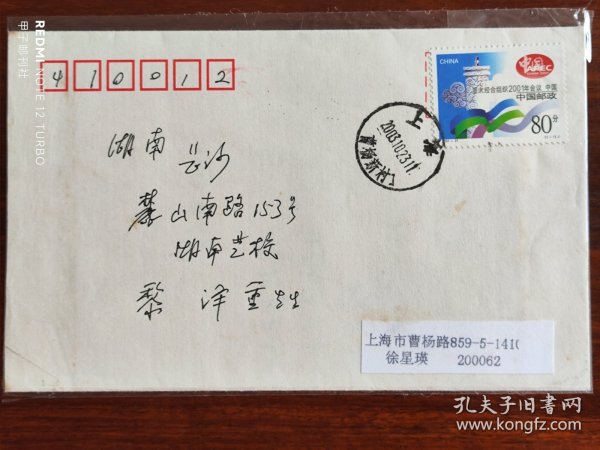 410012
CHINA
中国
APEC
亚太经合组织2001年会议 中国
中国邮政
80分
上海
2003.10.23.11
曹杨新村
湖南 长沙
麓山南路153号
湖南艺校
黎泽重先生
上海市曹杨路859-5-1410
徐星瑛 200062
REDMI NOTE 12 TURBO
甲子邮刊社
孔夫子旧书网
www.kongfz.com